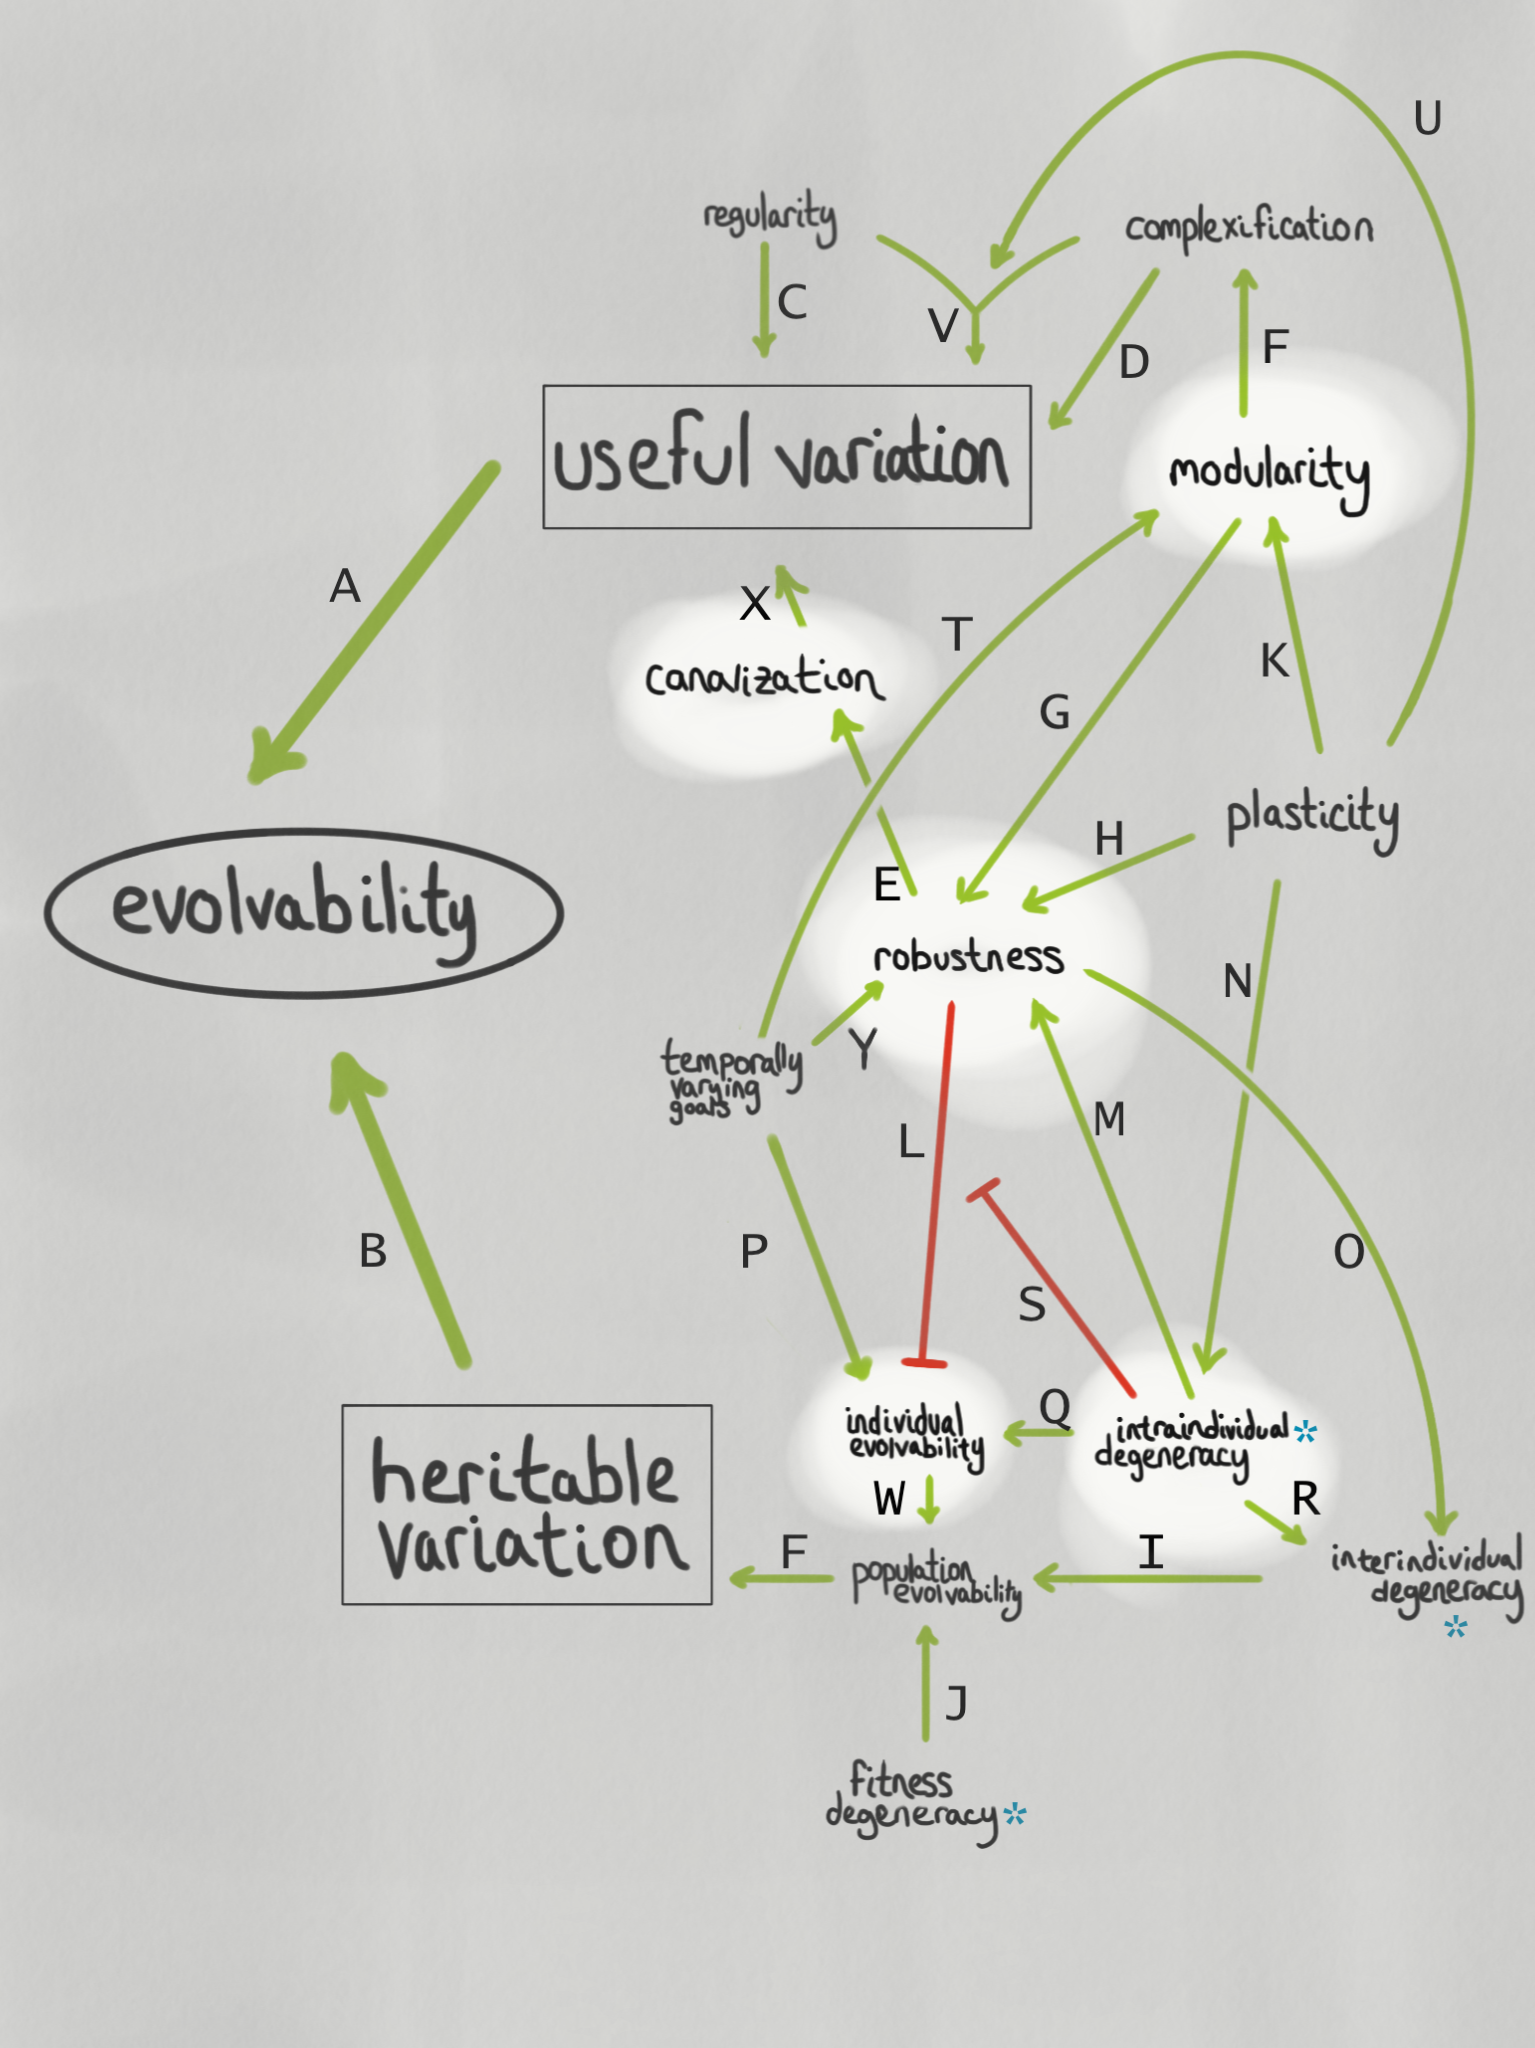 U
regularity
complexification
C
V
D
F
useful variation
modularity
A
X
T
canalization
K
G
plasticity
H
E
evolvability
robustness
N
Y
temporally
varying
goals
L
M
B
P
S
O
individual
evolvability
Q
intraindividual *
degeneracy
heritable
variation
W
R
F
population
evolvability
I
interindividual
degeneracy
*
J
fitness
degeneracy *